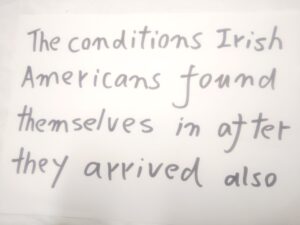 The conditions Irish
Americans found
themselves in after
they arrived also